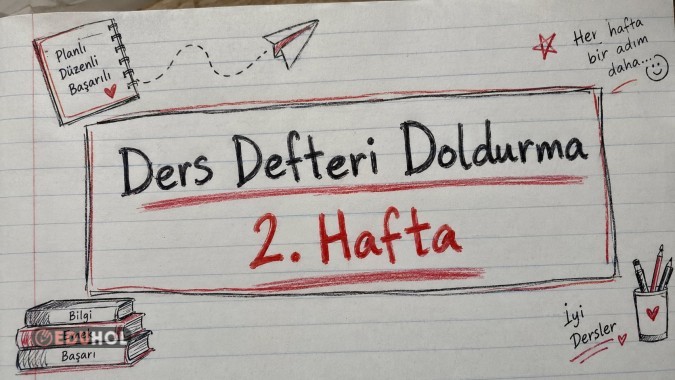 Planlı
Düzenli
Başarılı
Her hafta
bir adım
daha...
Ders Defteri Doldurma
2. Hafta
Bilgi
EDUHOL
Başarı
İyi
Dersler